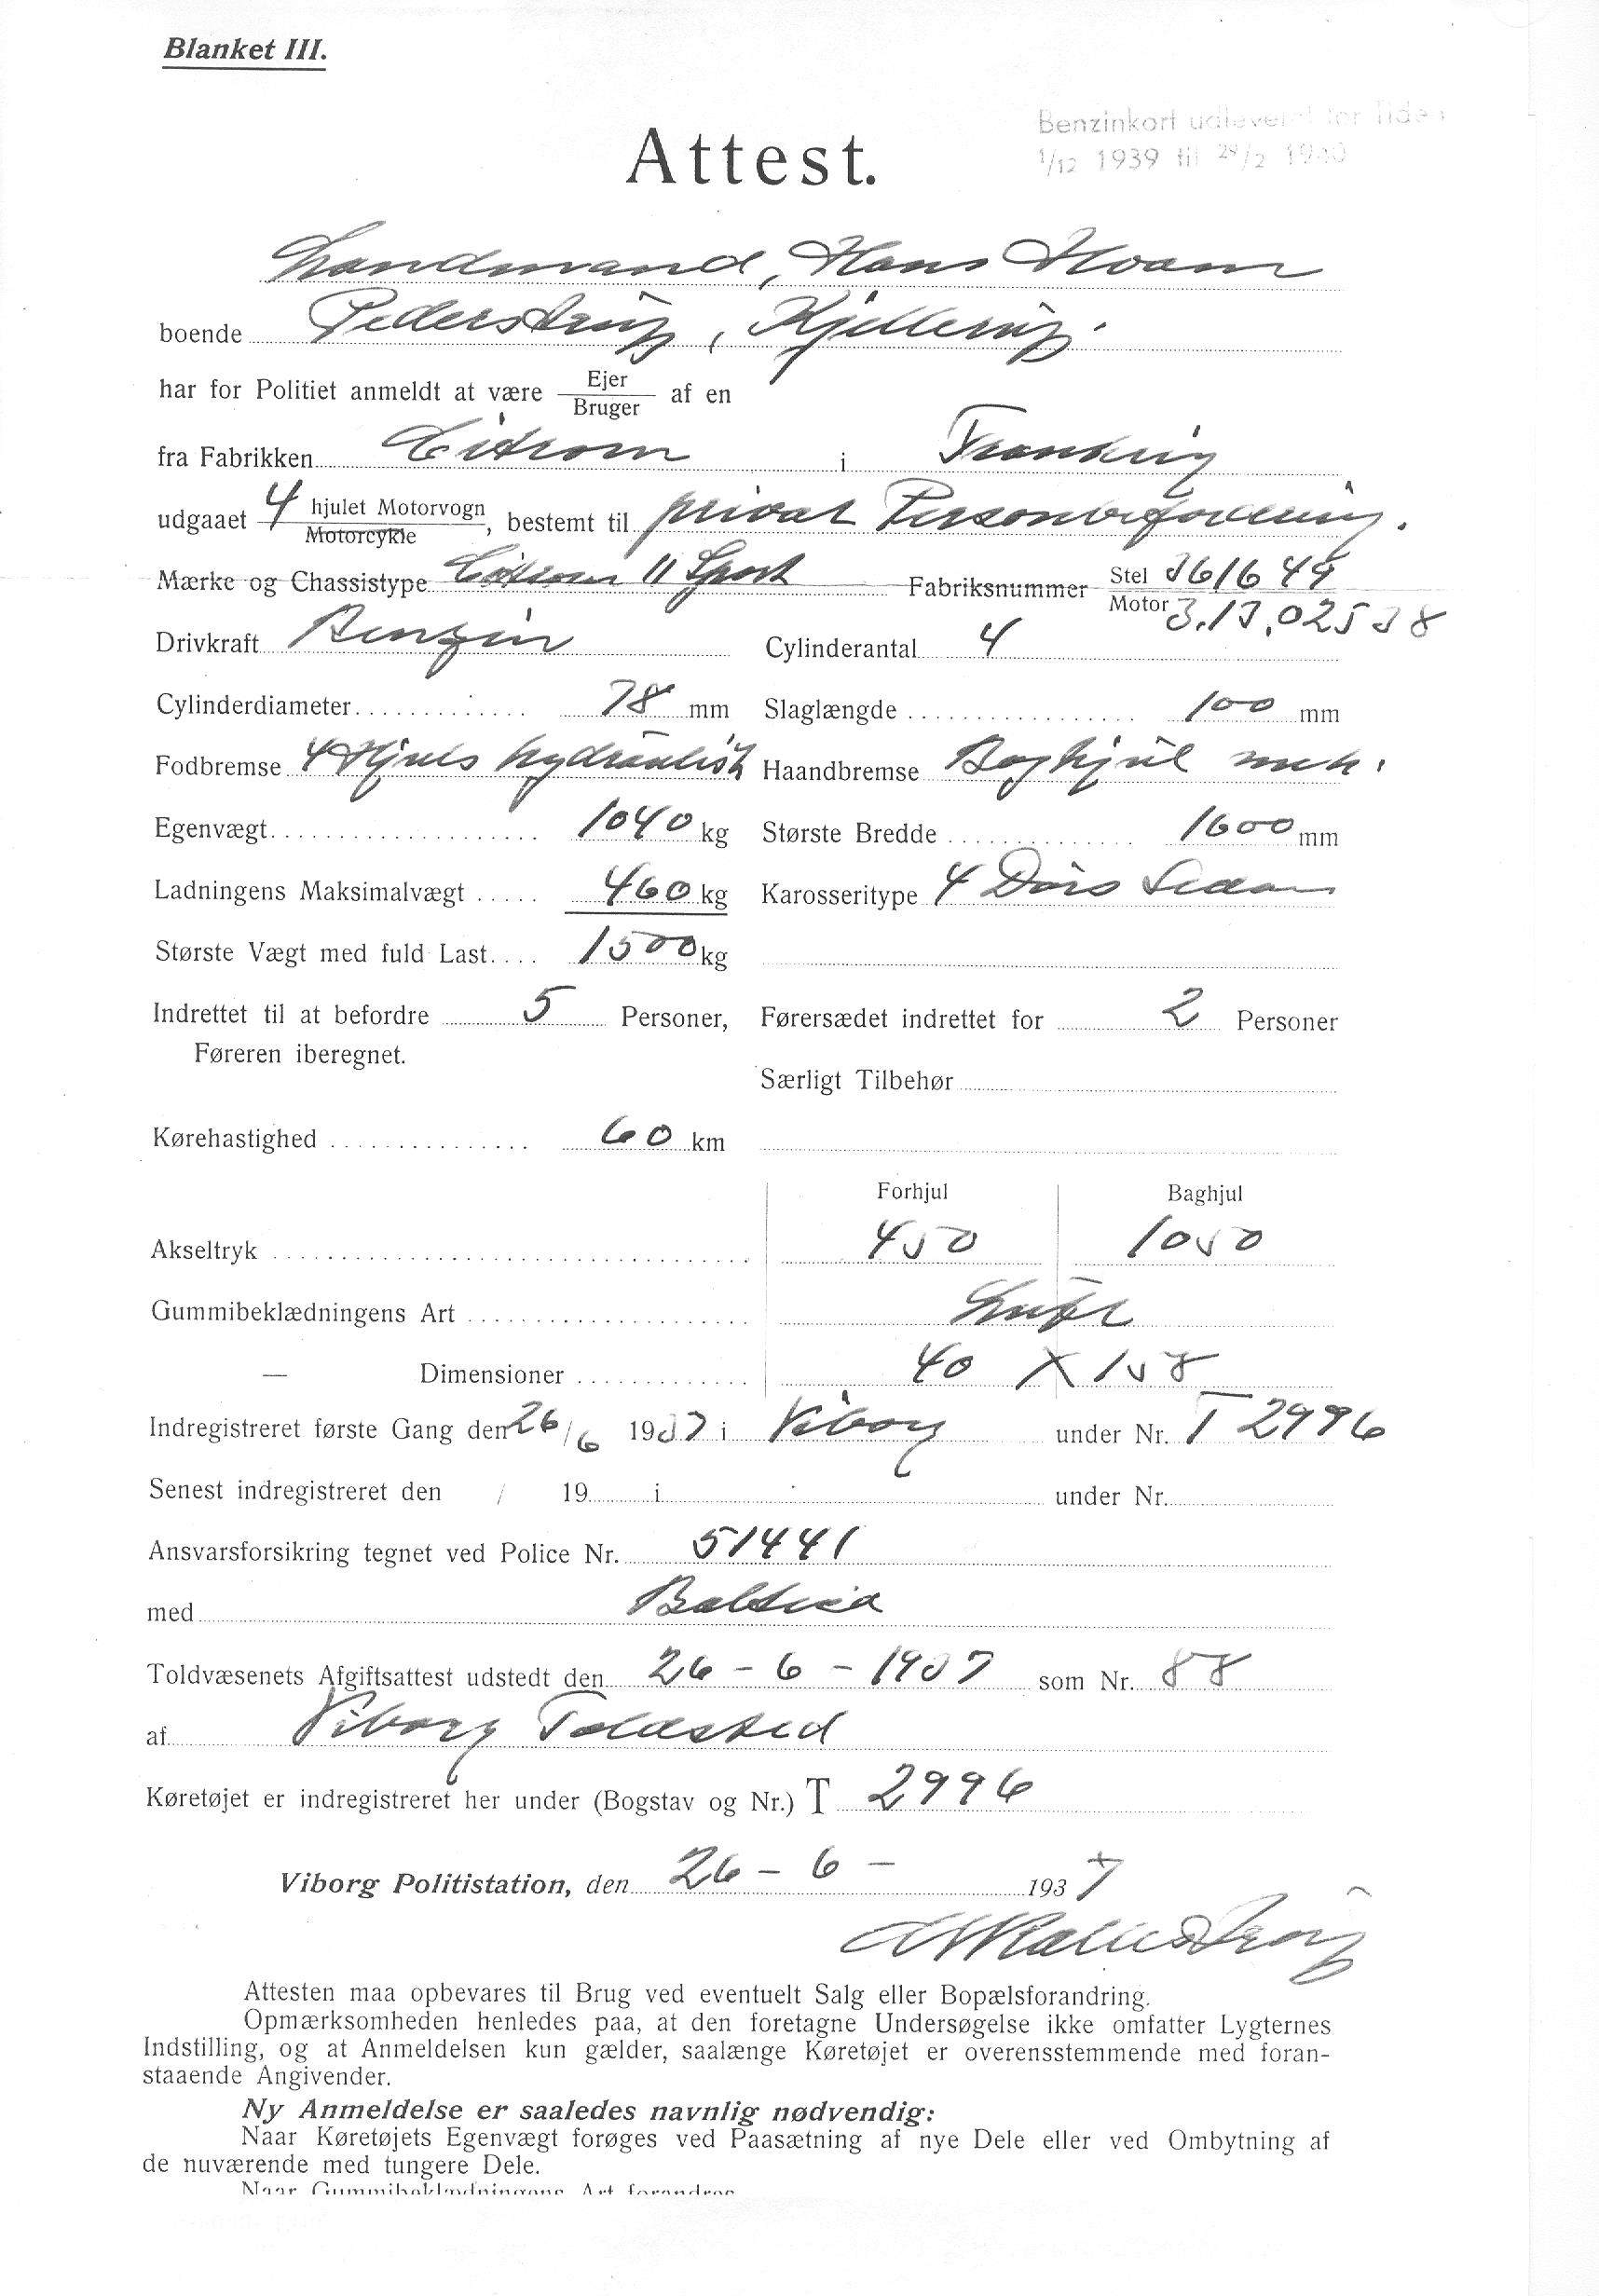 Blanket III.
Benzinkort udleveret for Tiden
1/12 1939 til 29/2 1940
Attest.
Landmand, Hans Hvam
boende Pederstrup, Kjellerup.
har for Politiet anmeldt at være Ejer/Bruger af en
fra Fabrikken Citroen i Frankrig
udgaaet 4 hjulet Motorvogn/Motorcykle, bestemt til privat Personbefordring.
Mærke og Chassistype Citroen 11 Sport Fabriksnummer Stel 361649
Motor 3.13.02538
Drivkraft Benzin Cylinderantal 4
Cylinderdiameter 78 mm Slaglængde 100 mm
Fodbremse 4 Hjuls hydraulisk Haandbremse Baghjul mek.
Egenvægt 1040 kg Største Bredde 1600 mm
Ladningens Maksimalvægt 460 kg Karosseritype 4 Dørs Sedan
Største Vægt med fuld Last 1500 kg
Indrettet til at befordre 5 Personer, Førersædet indrettet for 2 Personer
Føreren iberegnet.
Særligt Tilbehør
Kørehastighed 60 km
Forhjul Baghjul
Akseltryk 450 1050
Gummibeklædningens Art Luft
— Dimensioner 40 X 158
Indregistreret første Gang den 26/6 1937 i Viborg under Nr. T 2996
Senest indregistreret den / 19 i under Nr.
Ansvarsforsikring tegnet ved Police Nr. 51441
med Baltica
Toldvæsenets Afgiftsattest udstedt den 26-6-1937 som Nr. 88
af Viborg Toldsted
Køretøjet er indregistreret her under (Bogstav og Nr.) T 2996
Viborg Politistation, den 26-6- 1937
Attesten maa opbevares til Brug ved eventuelt Salg eller Bopælsforandring.
Opmærksomheden henledes paa, at den foretagne Undersøgelse ikke omfatter Lygternes
Indstilling, og at Anmeldelsen kun gælder, saalænge Køretøjet er overensstemmende med foran-
staaende Angivender.
Ny Anmeldelse er saaledes navnlig nødvendig:
Naar Køretøjets Egenvægt forøges ved Paasætning af nye Dele eller ved Ombytning af
de nuværende med tungere Dele.
Naar Gummibeklædningens Art forandres